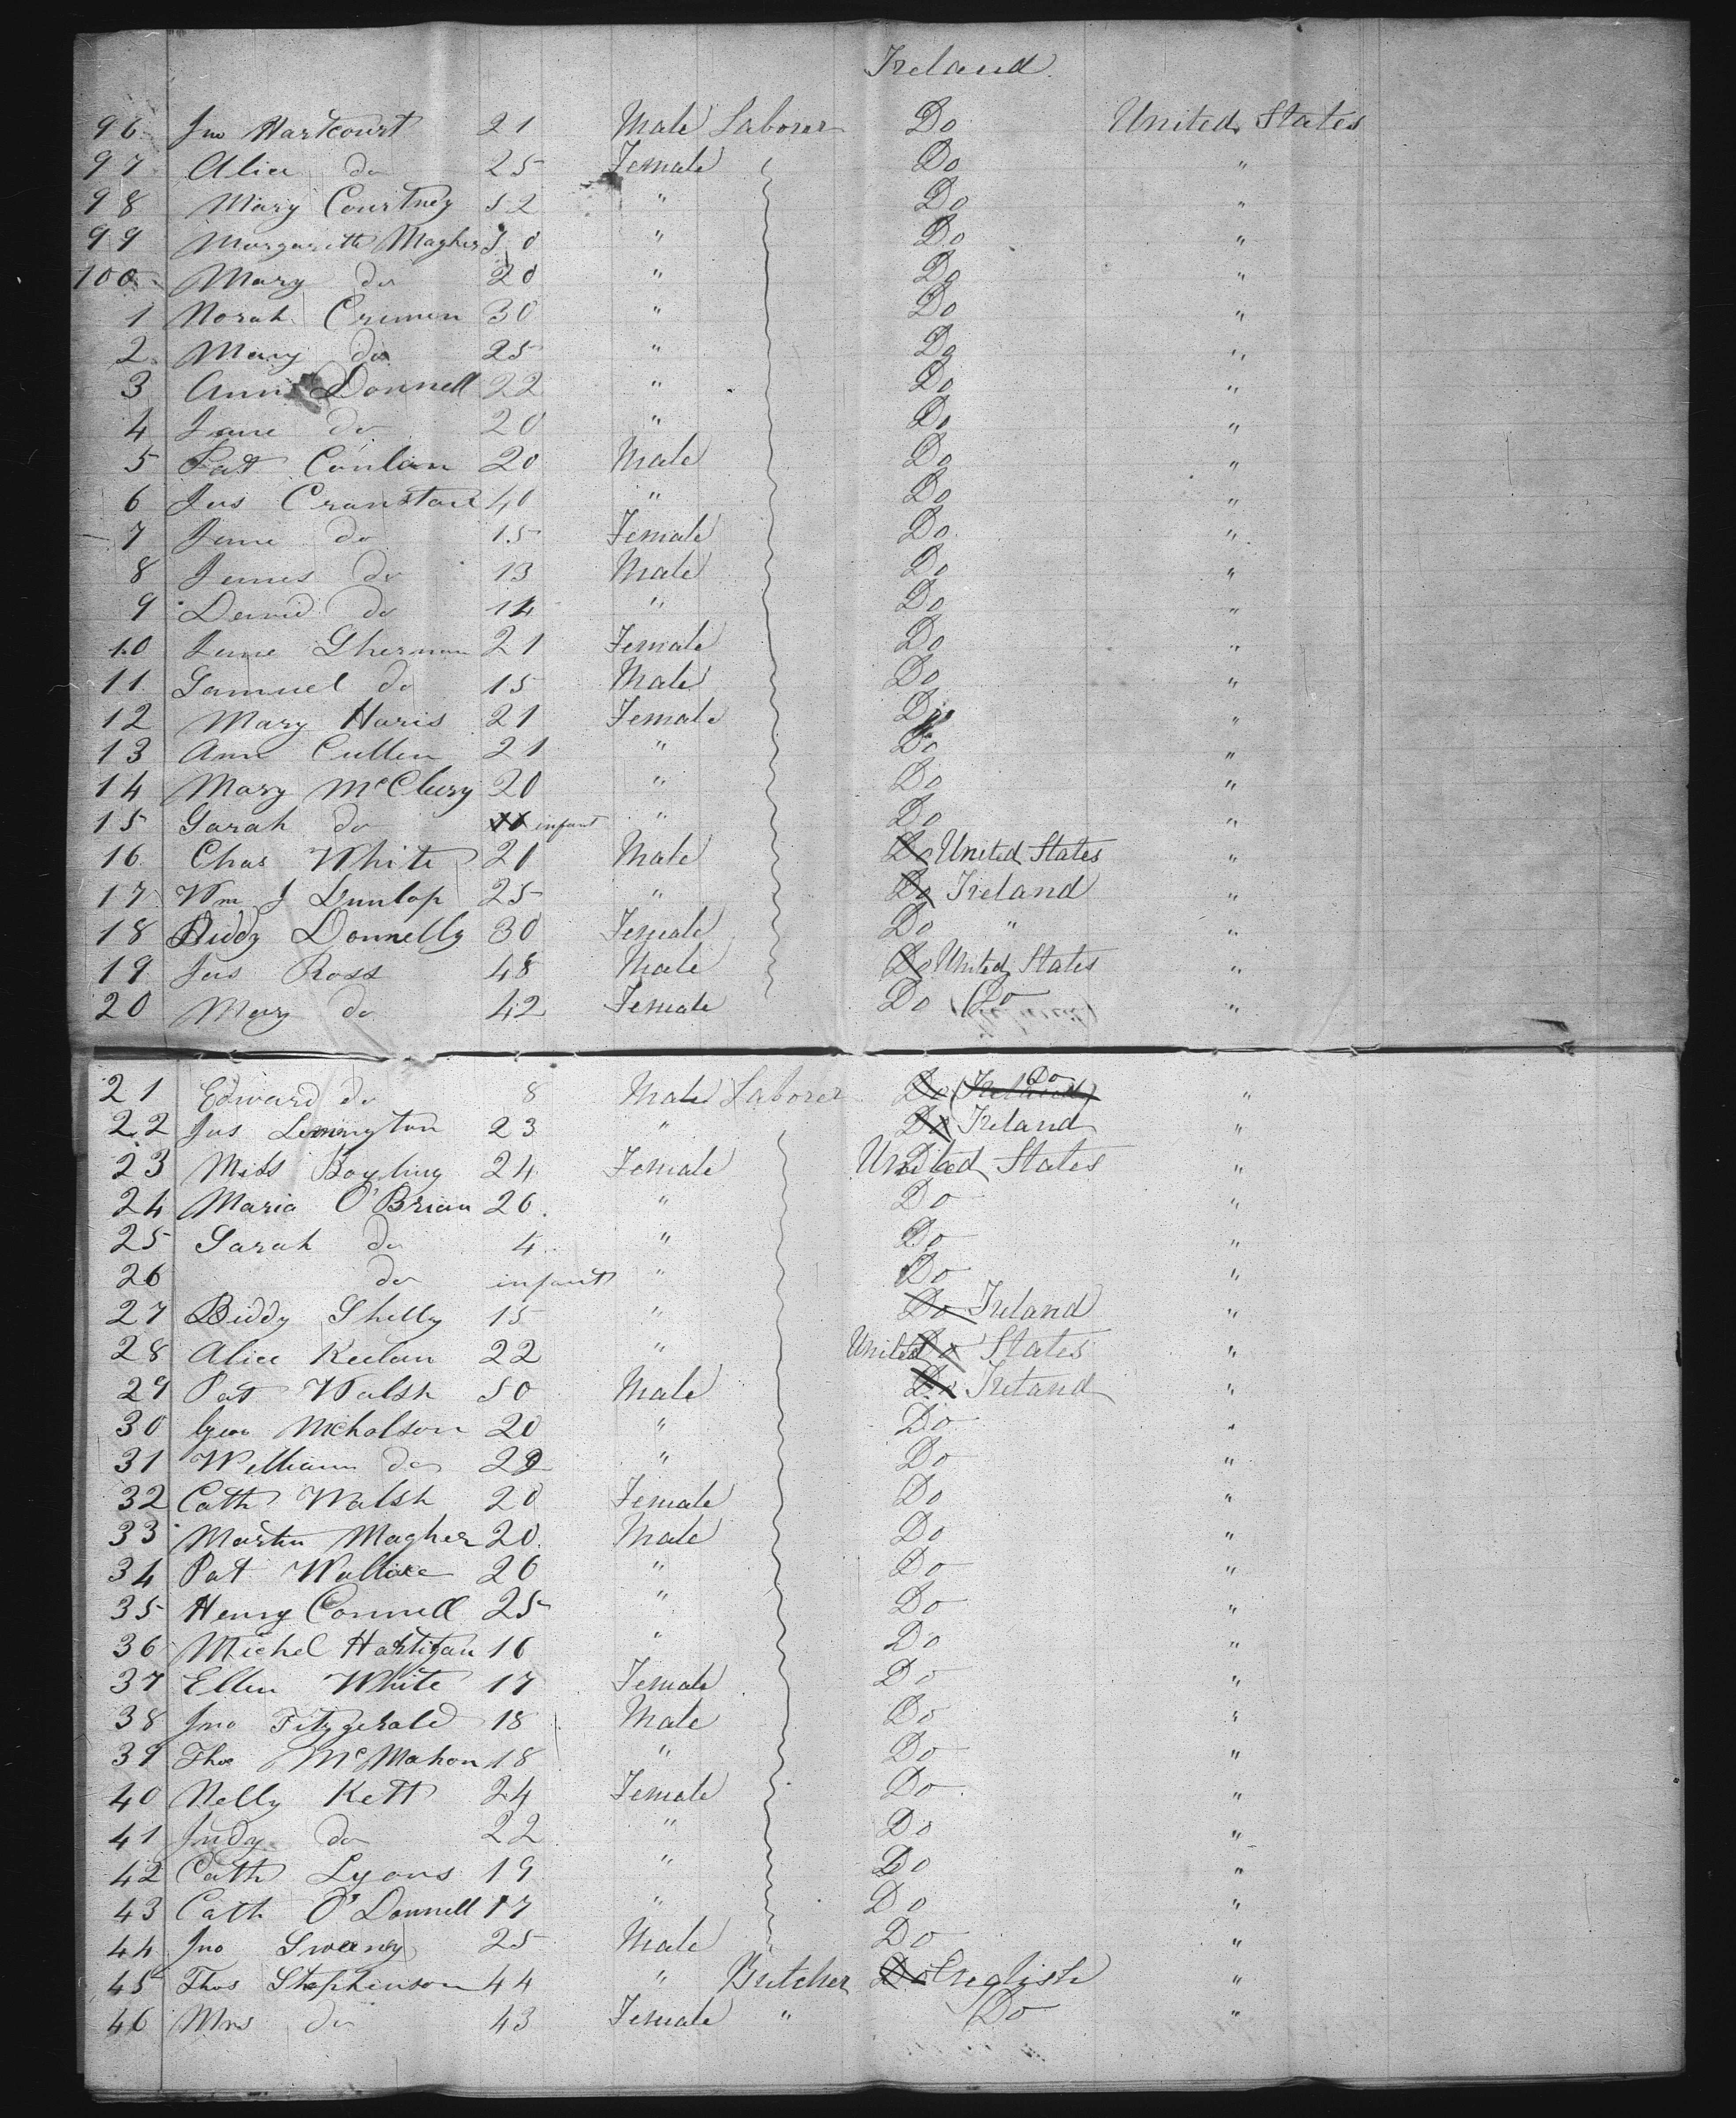 Ireland
96 Jno Hartcourt 21 Male Laborer Do United States
97 Alice do 25 Female Do "
98 Mary Courtney 52 " Do "
99 Margarett Magher " Do "
100 Mary do 20 " Do "
1 Norah Crimen 30 " Do "
2 Mary do 25 " Do "
3 Ann Donnell 22 " Do "
4 Jane do 20 " Do "
5 Pat Conlan 20 Male Do "
6 Jas 40 " Do "
7 Jane do 15 Female Do "
8 James do 13 Male Do "
9 David do 14 " Do "
10 Jane Sherman 21 Female Do "
11 Samuel do 15 Male Do "
12 Mary Haris 21 Female Do "
13 Ann Cullen 21 " Do "
14 Mary McClury 20 " Do "
15 Sarah do infant " Do "
16 Chas White 20 Male Do United States "
17 Wm J Dunlop 25 " Do Ireland "
18 Biddy Donnelly 30 Female Do " "
19 Jas Ross 48 Male Do United States "
20 Mary do 42 Female Do Do "
21 Edward do 8 Male Laborer Do (Ireland) Do "
22 Jas Lemington 23 " Do Ireland "
23 Miss Boyling 24 Female United States "
24 Maria O'Brian 26 " Do "
25 Sarah do 4 " Do "
26 do infant " Do "
27 Biddy Shelly 15 " Do Ireland "
28 Alice Keelan 22 " United Do States "
29 Pat Walsh 50 Male Do Ireland "
30 Geo Nicholson 20 " Do "
31 William do 22 " Do "
32 Cath Walsh 20 Female Do "
33 Martin Magher 20 Male Do "
34 Pat Wallace 20 " Do "
35 Henry Connell 25 " Do "
36 Michel Hartigan 16 " Do "
37 Ellen White 17 Female Do "
38 Jno Fitzgerald 18 Male Do "
39 Thos McMahon 18 " Do "
40 Nelly Kett 24 Female Do "
41 Judy do 22 " Do "
42 Cath Lyons 19 " Do "
43 Cath O'Donnell 17 " Do "
44 Jno Sweeney 25 Male Do "
45 Thos Stephenson 44 " Butcher Do English "
46 Mrs do 43 Female " Do "